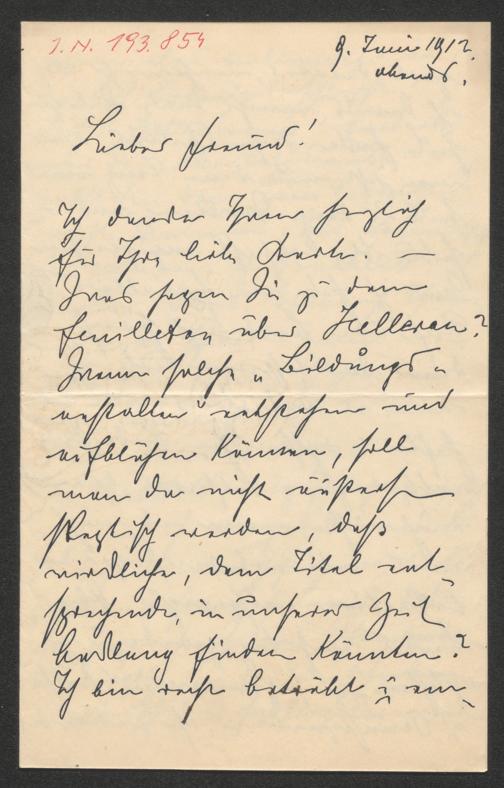 I.N. 193.854
9. Juni 1912.
abends.
Lieber Freund!
Ich danke Ihnen herzlich
für Ihre liebe Karte. —
Was sagen Sie zu dem
Feuilleton über Hellerau?
Wenn solche „Bildungs-
anstalten" entstehen und
aufblühen können, soll
man da nicht äußerst
skeptisch werden, daß
wirkliche, dem Titel ent-
sprechende, in unserer Zeit
finden könnten?
Ich bin recht betrübt u